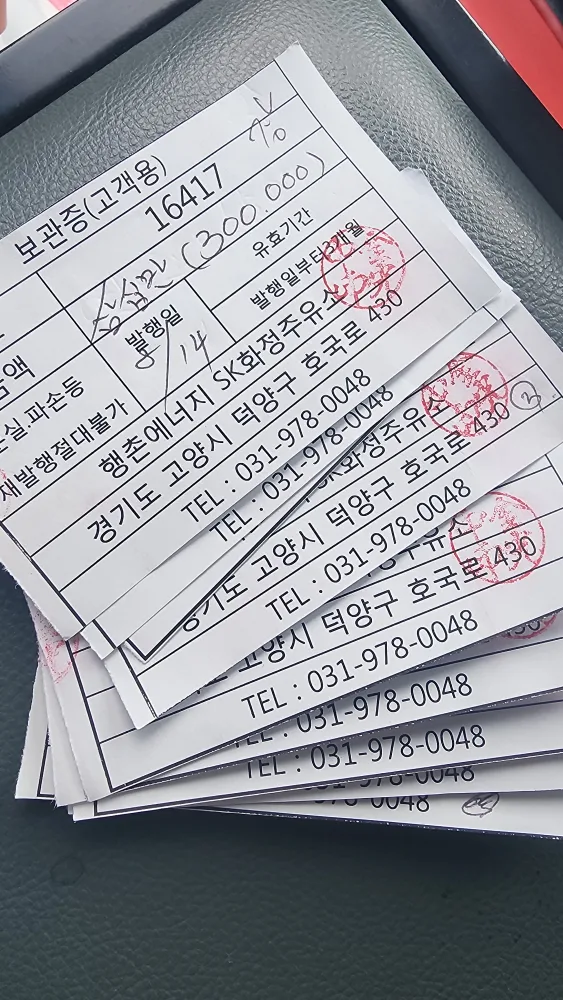 보관증(고객용)
16417
삼십만 (300.000)
유효기간
발행일
발행일부터3개월
8/14
실.파손등
재발행절대불가
행촌에너지 SK화정주유소
경기도 고양시 덕양구 호국로 430
TEL : 031-978-0048
TEL : 031-978-0048
SK화정주유소
경기도 고양시 덕양구 호국로 430
3
TEL : 031-978-0048
주유소
고양시 덕양구 호국로 430
TEL : 031-978-0048
TEL : 031-978-0048
TEL : 031-978-0048
978-0048